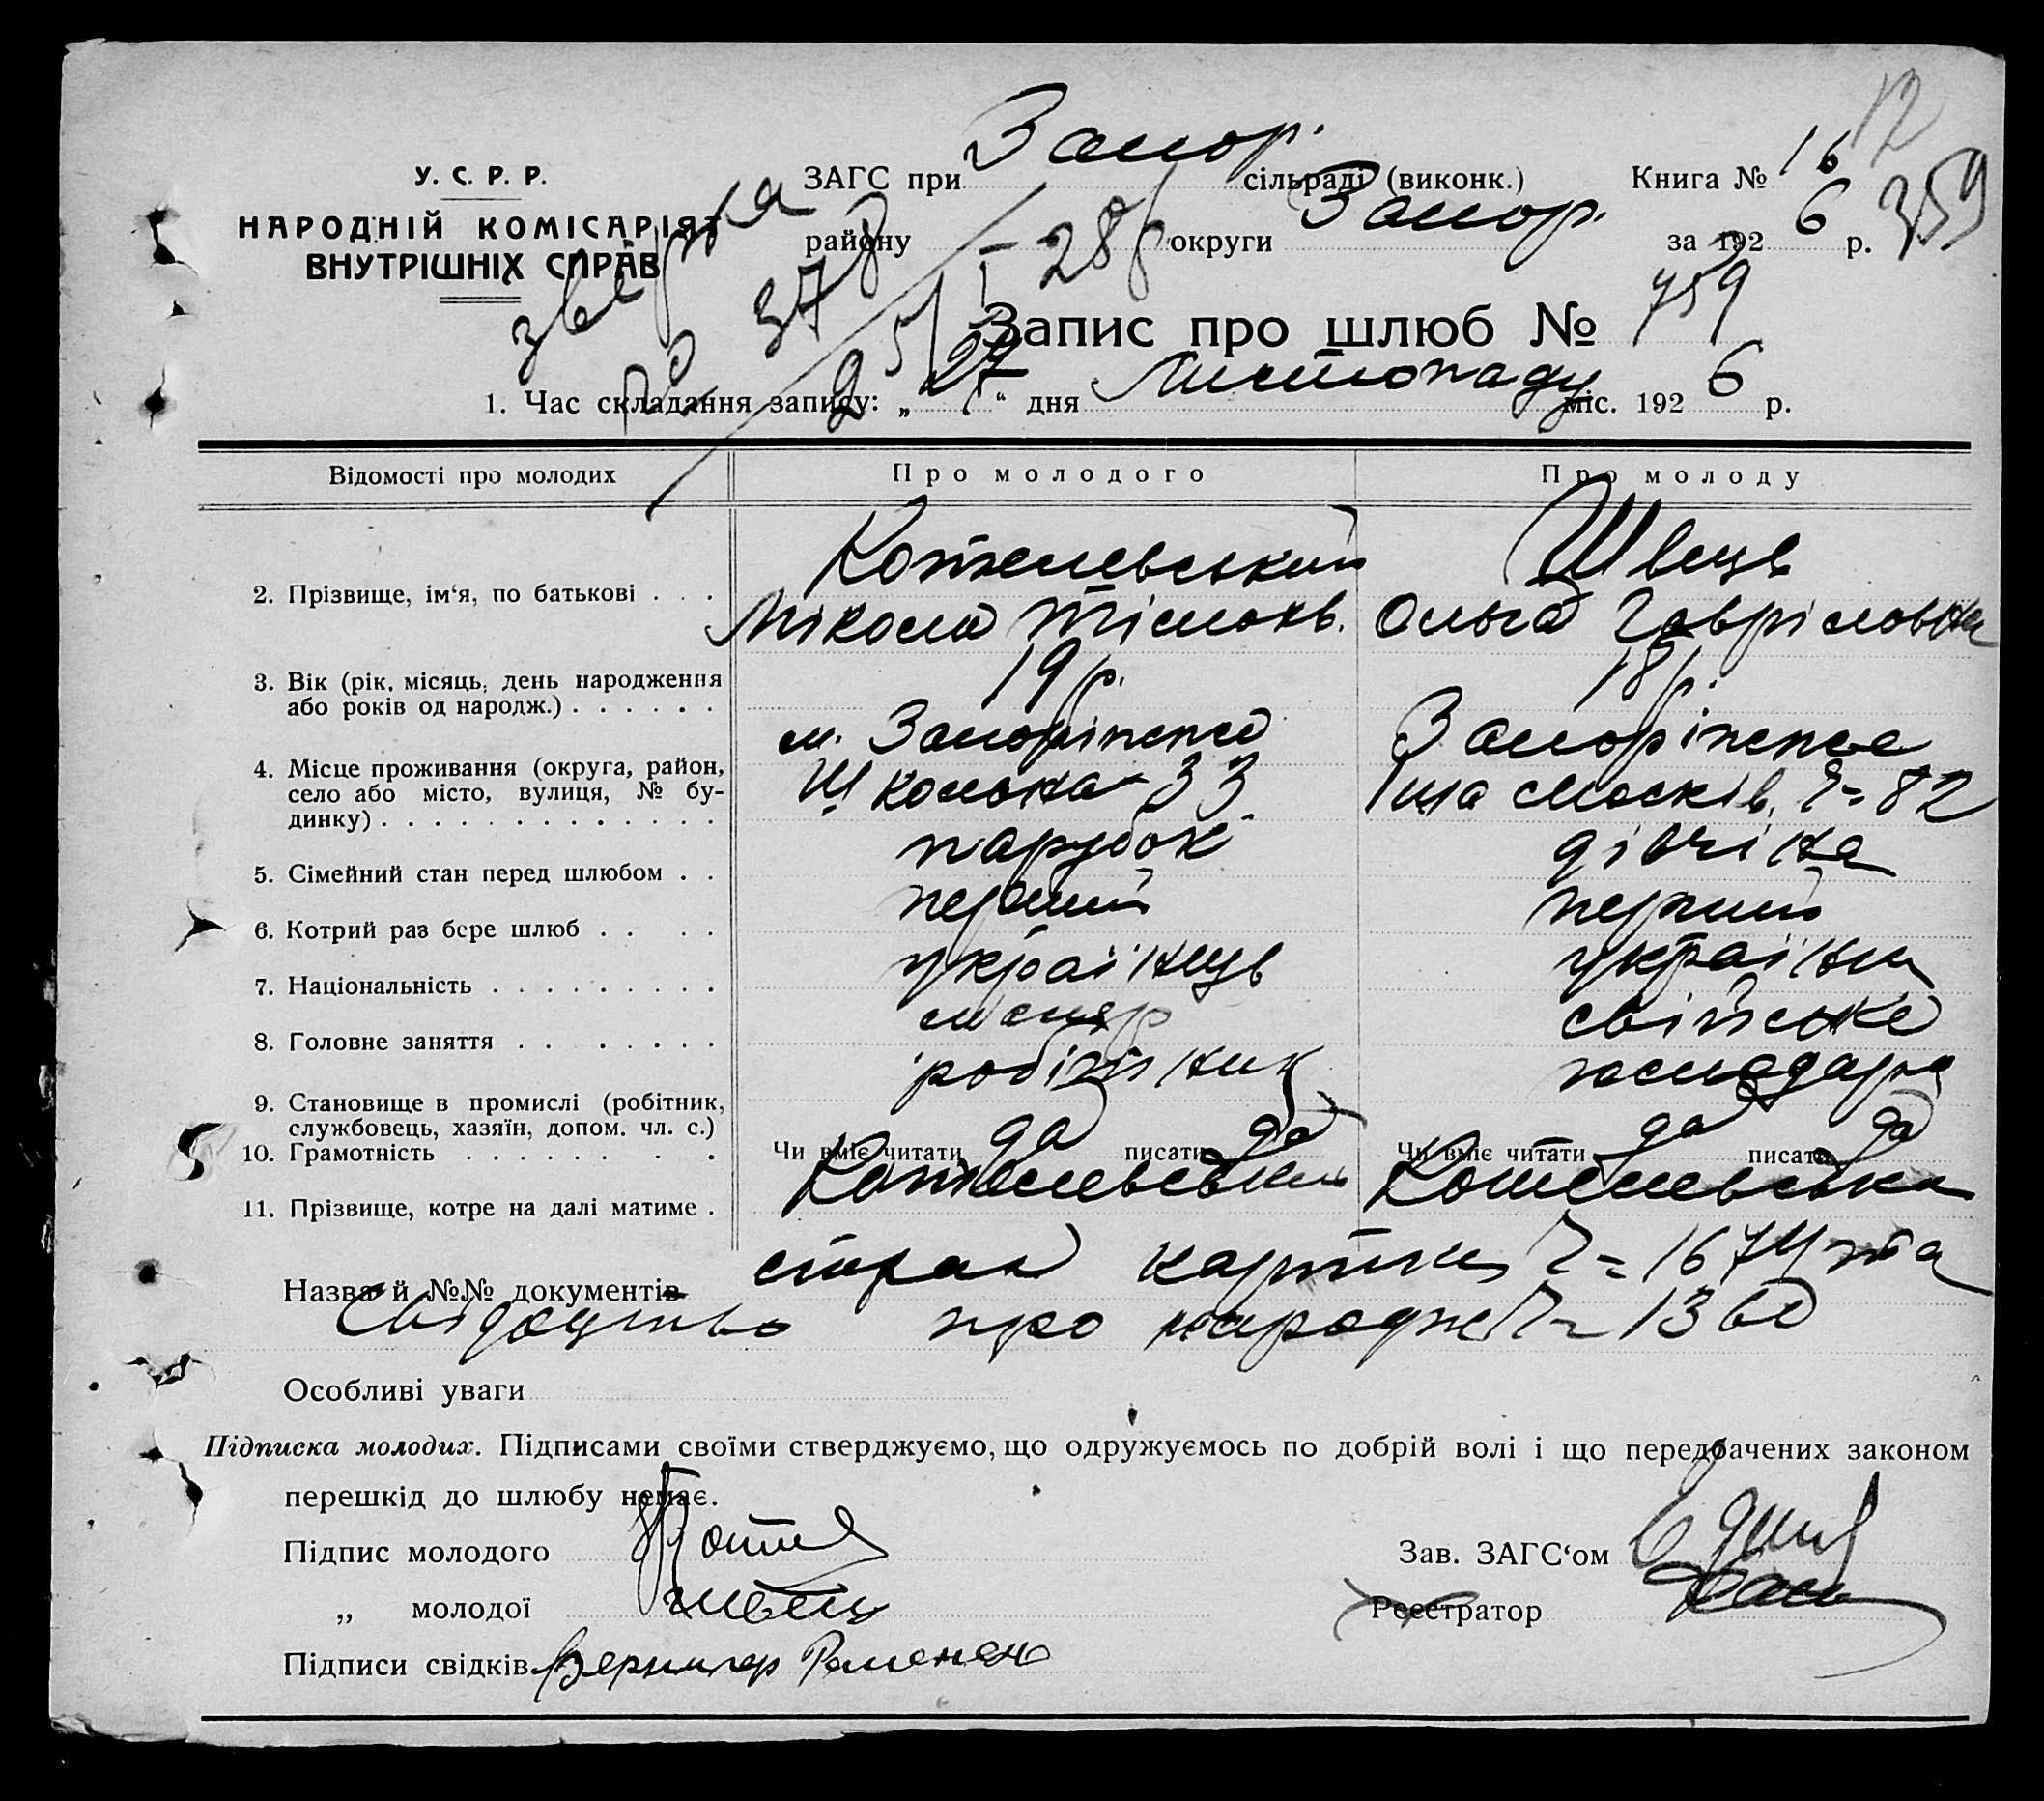 12
У. С. Р. Р.
НАРОДНІЙ КОМІСАРІЯТ
ВНУТРІШНІХ СПРАВ
ЗАГС при Запор. сільраді (виконк.) Книга № 16
359
району округи Запор. за 192 6 р.
378
Запис про шлюб № 759
1. Час складання запису: „ 27 “ дня Листопаду міс. 192 6 р.
Відомості про молодих Про молодого Про молоду
2. Прізвище, ім‘я, по батькові . . . Котелевський Швець
Мікола Тімохв. Ольга Гавріловна
3. Вік (рік, місяць, день народження
або років од народж.) . . . . . . 19 р. 18 р.
4. Місце проживання (округа, район,
село або місто, вулиця, № бу-
динку) . . . . . . . . . . . . . м. Запоріжжя Запоріжже
Шкоьна 33 82
5. Сімейний стан перед шлюбом . . парубок дівчіна
6. Котрий раз бере шлюб . . . . перший перший
7. Національність . . . . . . . . . україньць україн
8. Головне заняття . . . . . . . слюсяр свійське
9. Становище в промислі (робітник,
службовець, хазяїн, допом. чл. с.) робітник
10. Грамотність . . . . . . . . Чи вміє читати да писати да Чи вміє читати да писати да
11. Прізвище, котре на далі матиме . Котелевський Котелевська
Назва й №№ документів картки 1674 та
Свідоцтво про народж 1360
Особливі уваги
Підписка молодих. Підписами своїми стверджуємо, що одружуємось по добрій волі і що передбачених законом
перешкід до шлюбу немає.
Підпис молодого Зав. ЗАГС‘ом
„ молодої Швець Реєстратор
Підписи свідків